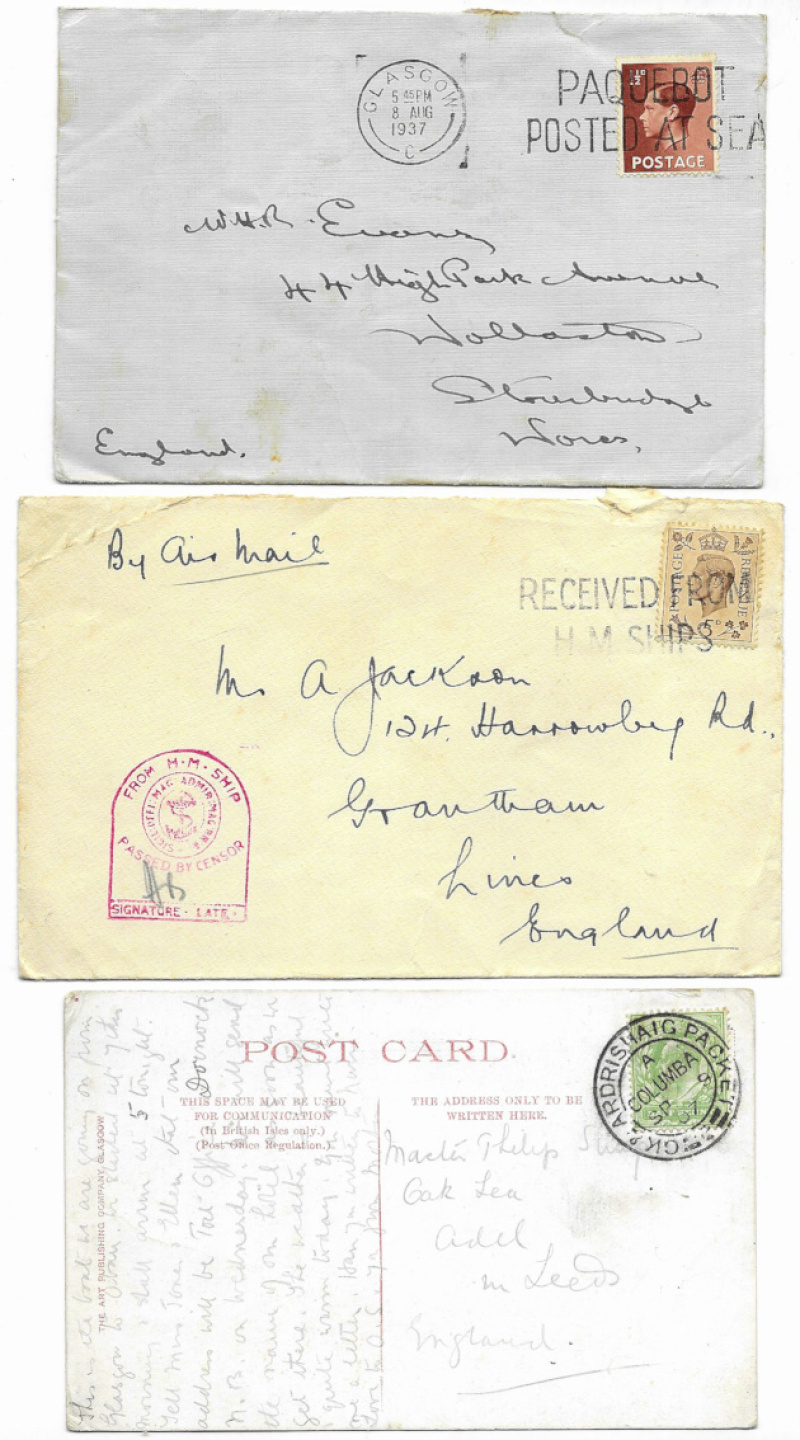 GLASGOW
5 45 PM
8 AUG
1937
C
PAQUEBOT
POSTED AT SEA
POSTAGE
W.H.R. Evans
44 High Park Avenue
Wollaston
Stourbridge
Worcs,
England.
By Air Mail
RECEIVED FROM
H.M. SHIPS
POSTAGE
REVENUE
5D
Mr A Jackson
124. Harrowby Rd.,
Grantham
Lincs
England
FROM H·M·SHIP
PASSED BY CENSOR
SIGNATURE · DATE ·
POST CARD.
THIS SPACE MAY BE USED
FOR COMMUNICATION
(In British Isles only.)
(Post Office Regulation.)
THE ADDRESS ONLY TO BE
WRITTEN HERE.
THE ART PUBLISHING COMPANY, GLASGOW
& ARDRISHAIG PACKET
A
COLUMBA
SP 1
Master Philip
Oak Lea
Adel
nr Leeds
England.
This is the boat we are going on from
Glasgow to Oban, or eleven at 7 this
morning & shall arrive at 5 tonight.
Tell Miss Jone & Ellen that our
address will be Post Office Dornock
N.B. on Wednesday. I will send
the name of our hotel as soon as we
get there. The weather is
quite warm today.
me a letter.
Love to